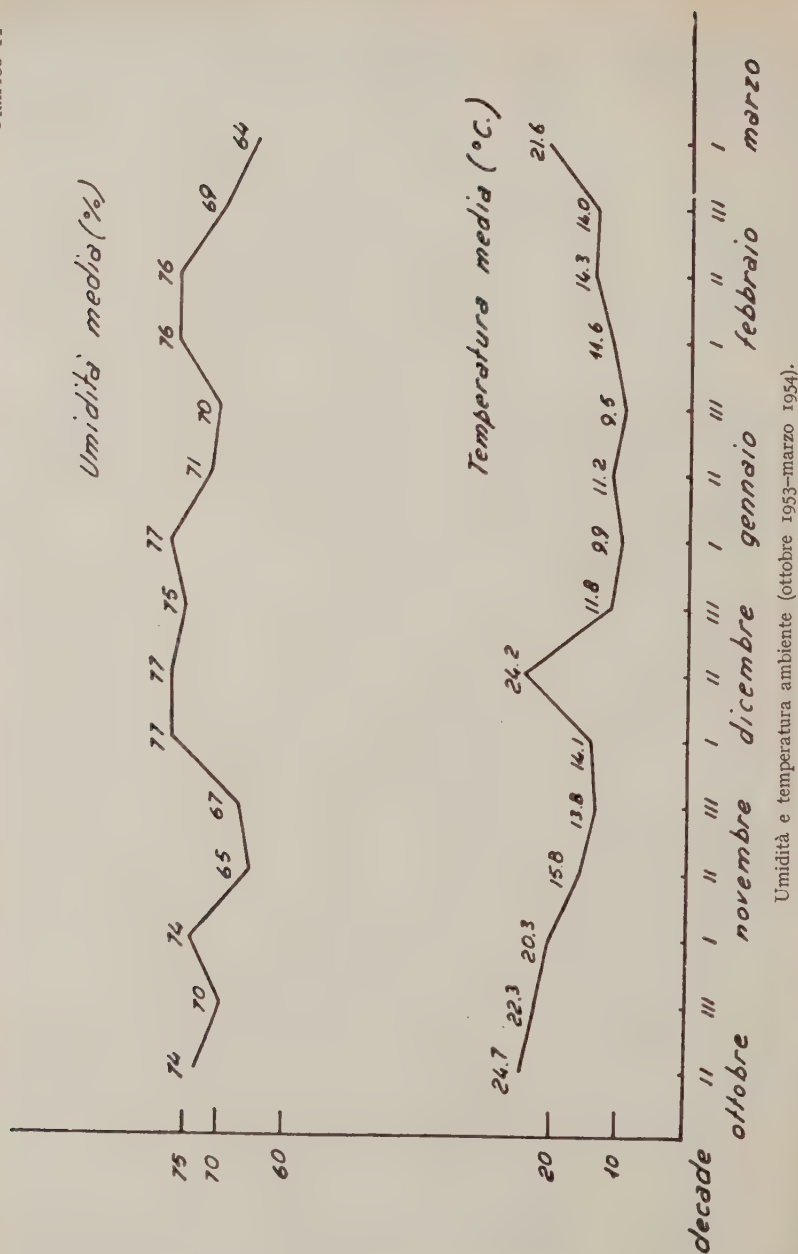 Umidità media (%)
74 70 74 65 67 77 77 75 77 71 70 76 76 69 64
75
70
60
Temperatura media (°C.)
24.7 22.3 20.3 15.8 13.8 14.1 24.2 11.8 9.9 11.2 9.5 11.6 14.3 14.0 21.6
20
10
decade II III I II III I II III I II III I II III I
ottobre novembre dicembre gennaio febbraio marzo
Umidità e temperatura ambiente (ottobre 1953-marzo 1954).